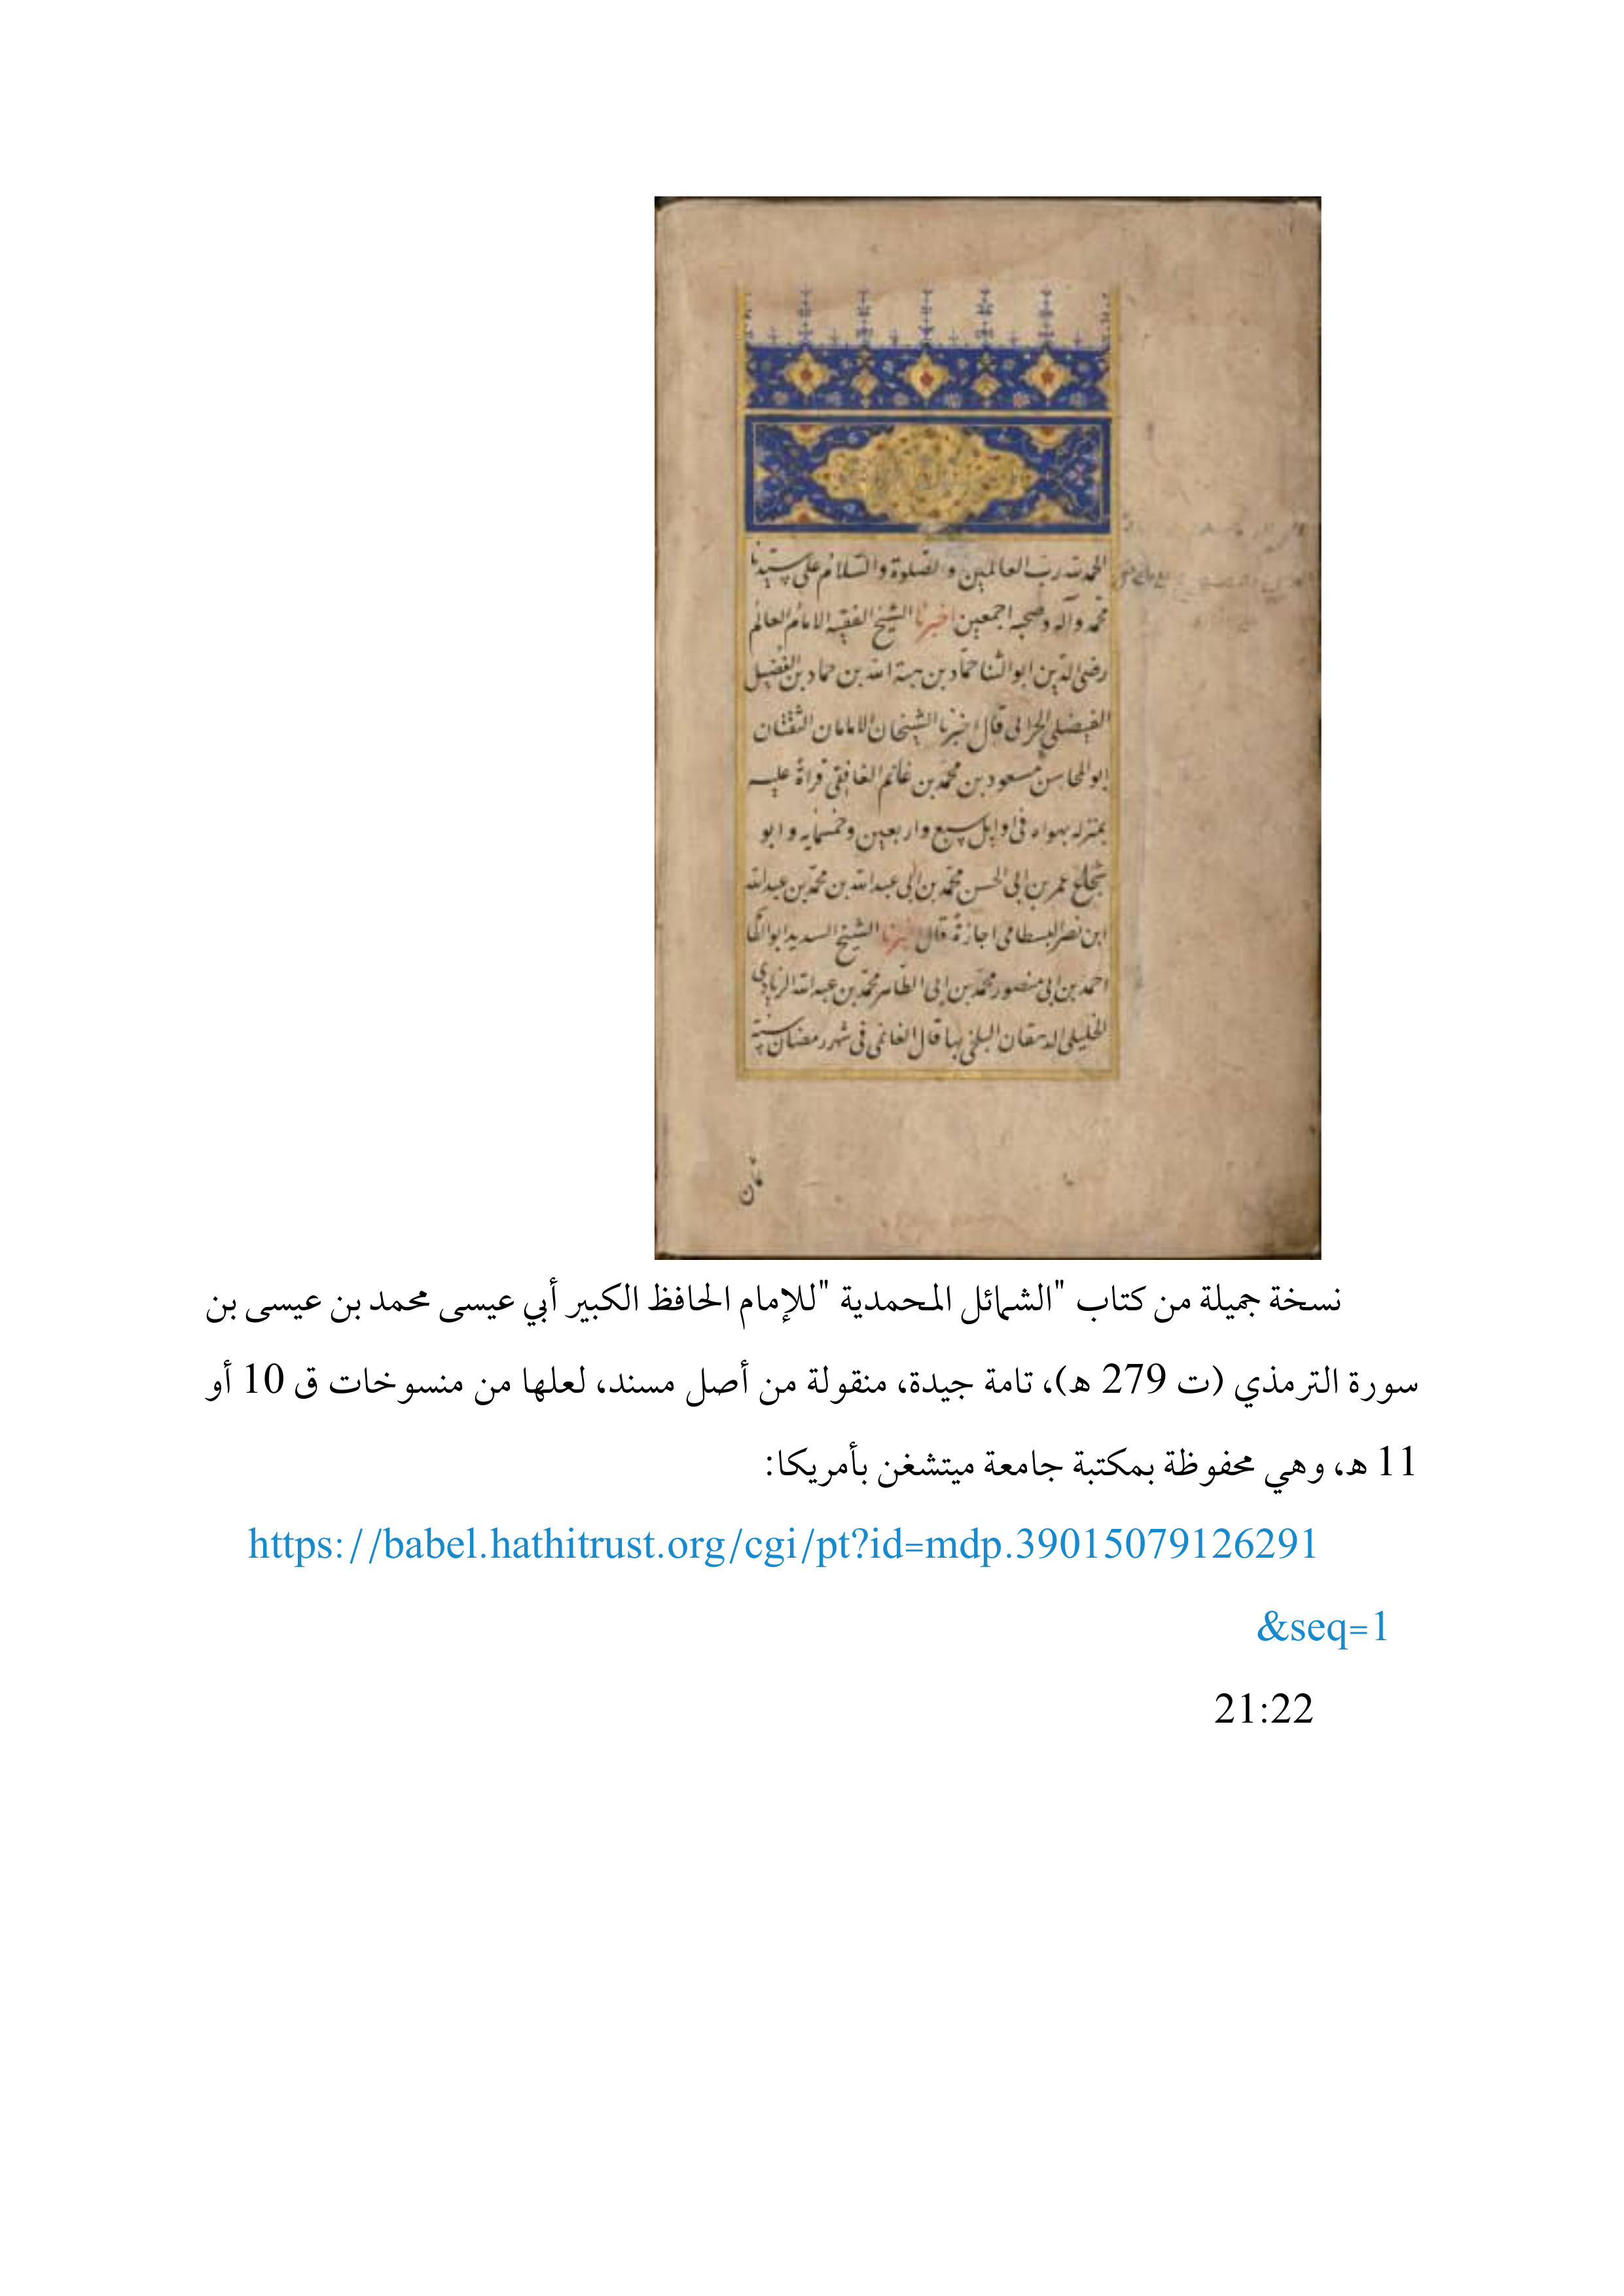 الحمد لله رب العالمين والصلوة والسلام على سيدنا
محمد وآله وصحبه اجمعين اخبرنا الشيخ الفقيه الامام العالم
رضى الدين ابو الثنا حماد بن هبة الله بن حماد بن الفضيل
الفضيلى الحرانى قال اخبرنا الشيخان الامامان الثقتان
ابو المحاسن مسعود بن محمد بن غانم الغانمى قراة عليه
بمنزله بهراه فى اوايل سبع واربعين وخمسمايه وابو
شجاع عمر بن ابى الحسن محمد بن ابى عبد الله بن محمد بن عبد الله
ابن نصر البسطامى اجازة قال اخبرنا الشيخ السديد ابو القا
احمد بن ابى منصور محمد بن ابى الطاهر محمد بن عبد الله الزيادى
الخليلى الدهقان البلخى بها قال الغانمى فى شهر رمضان سنة
ثمان
نسخة جميلة من كتاب "الشمائل المحمدية "للإمام الحافظ الكبير أبي عيسى محمد بن عيسى بن
سورة الترمذي (ت 279 ه)، تامة جيدة، منقولة من أصل مسند، لعلها من منسوخات ق 10 أو
11 ه، وهي محفوظة بمكتبة جامعة ميتشغن بأمريكا:
https://babel.hathitrust.org/cgi/pt?id=mdp.39015079126291
&seq=1
21:22